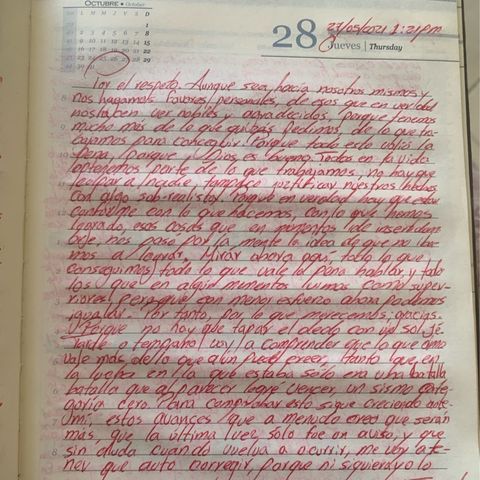 OCTUBRE • October
L M M J V S D
28
Jueves | Thursday
27/05/2021 1:21pm
Por el respeto. Aunque sea, hacia nosotros mismos y
nos hagamos favores personales, de esos que en verdad
nos haben ver nobles y agradecidos, porque tenemos
mucho más de lo que quizás pedimos, de lo que tra-
bajamos para conseguir. Porque todo esto valió la
pena, porque ¡Dios es bueno! Todos en la vida
obtenemos parte de lo que trabajamos, no hay que
culpar a nadie, tampoco justificar nuestros hechos
con algo sob-realista. Porque en verdad hay que estar
conforme con lo que hacemos, con lo que hemos
logrado, esas cosas que en momentos de
nos pasó por la mente la idea de que no iba-
mos a lograr. Mirar ahora aquí, todo lo que
conseguimos, todo lo que vale la pena hablar, y todo
los que en algún momentos vimos como super-
riores, pero que con menor esfuerzo ahora podemos
igualar. Por tanto, por lo que merecemos, gracias.
Porque no hay que tapar el dedo con un sol.
Tarde o temprano voy a comprender que lo que
vale más de lo que aún puedo creer, tanto que en
la lucha en la que estaba solo era una batalla
batalla que al parecer logré vencer, un sismo cate-
goría cero. Para comprobar esto sigue creciendo ante
mí, estos avances que a menudo creo que serán
más, que la última vez, solo fue un aviso, y que
sin duda cuando vuelva a ocurrir, me voy a te-
ner que auto corregir, porque ni siquiera yo lo